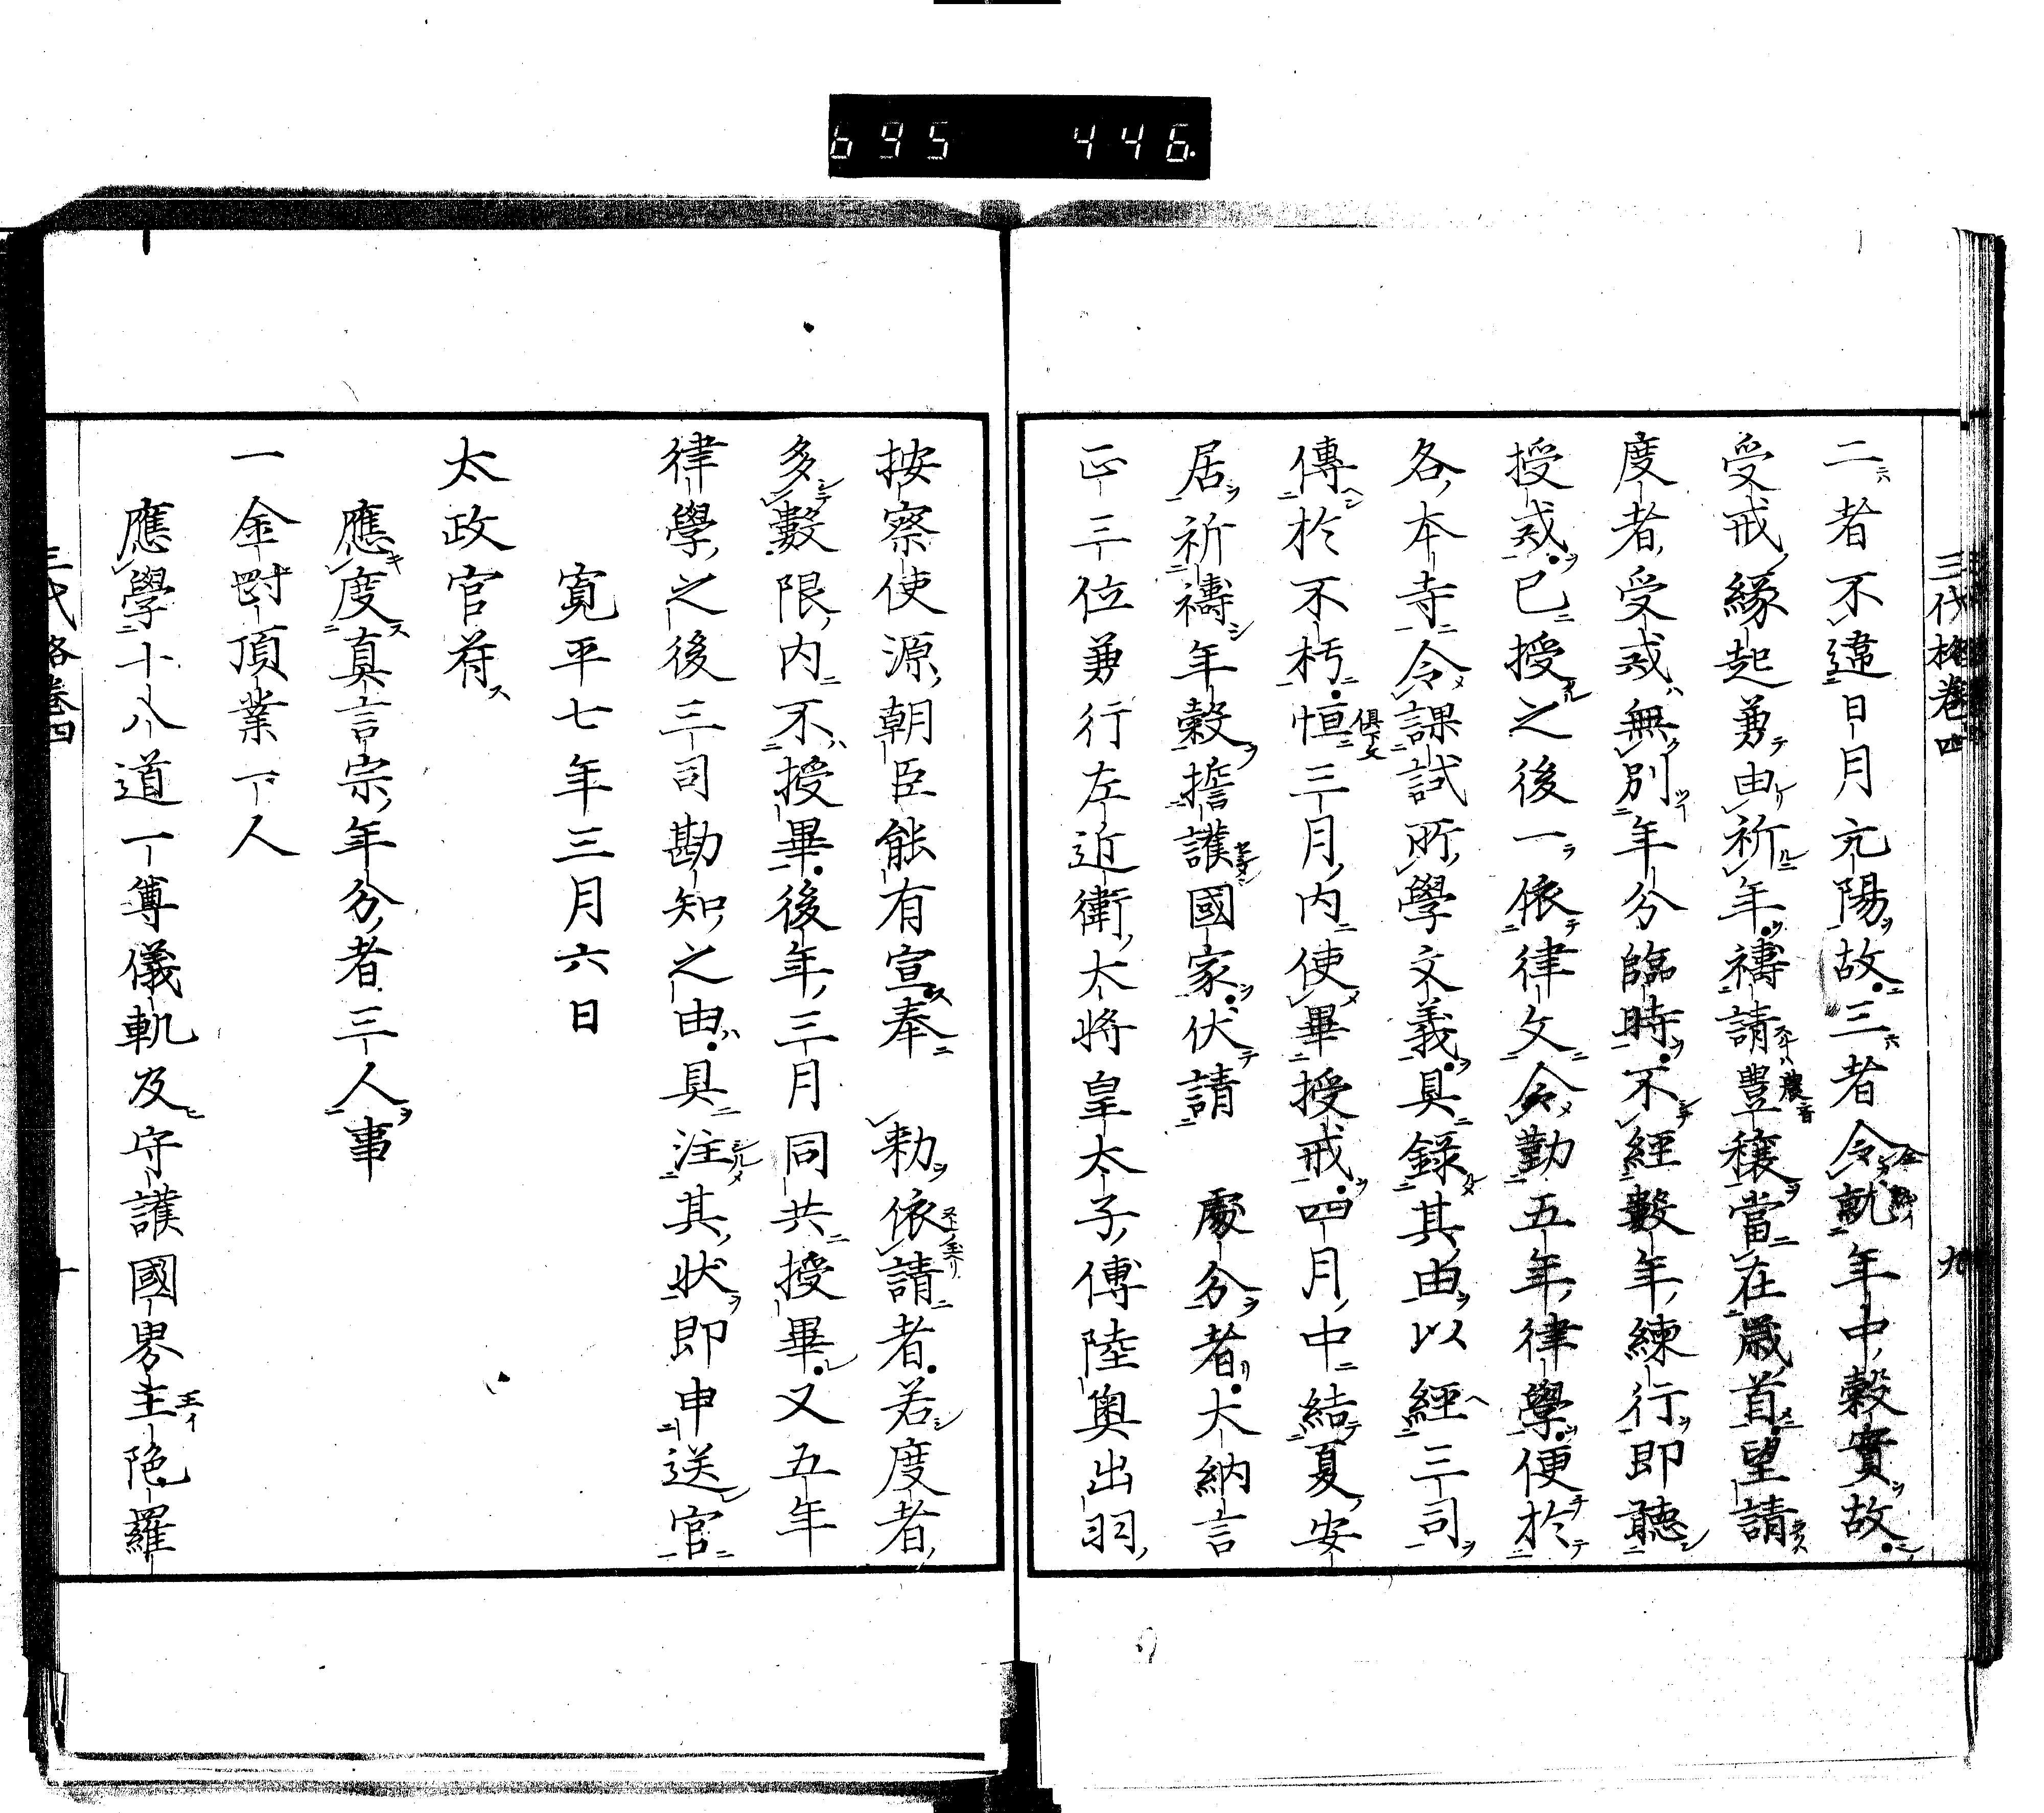 695 446.
三代格卷四 九
二者不違日月亢陽故三者令就年中穀實故
受戒緣起兼由祈年禱請豊穰當在歳首望請
度者受戒無別年分臨時不經數年練行即聽
授戒已授之後一依律文令勤五年律學便於
各本寺令課試所學文義具録其由以經三司
傳於不朽恒三月内使畢授戒四月中結夏安
居祈禱年穀擔護國家伏請 處分者大納言
正三位兼行左近衛大将皇太子傅陸奥出羽
按察使源朝臣能有宣奉 勅依請者若度者
多數限内不授畢後年三月同共授畢又五年
律學之後三司勘知之由具注其状即申送官
寛平七年三月六日
太政官符
應度真言宗年分者三人事
一金剛頂業一人
應學十八道一尊儀軌及守護國界主陁羅
三代格卷四